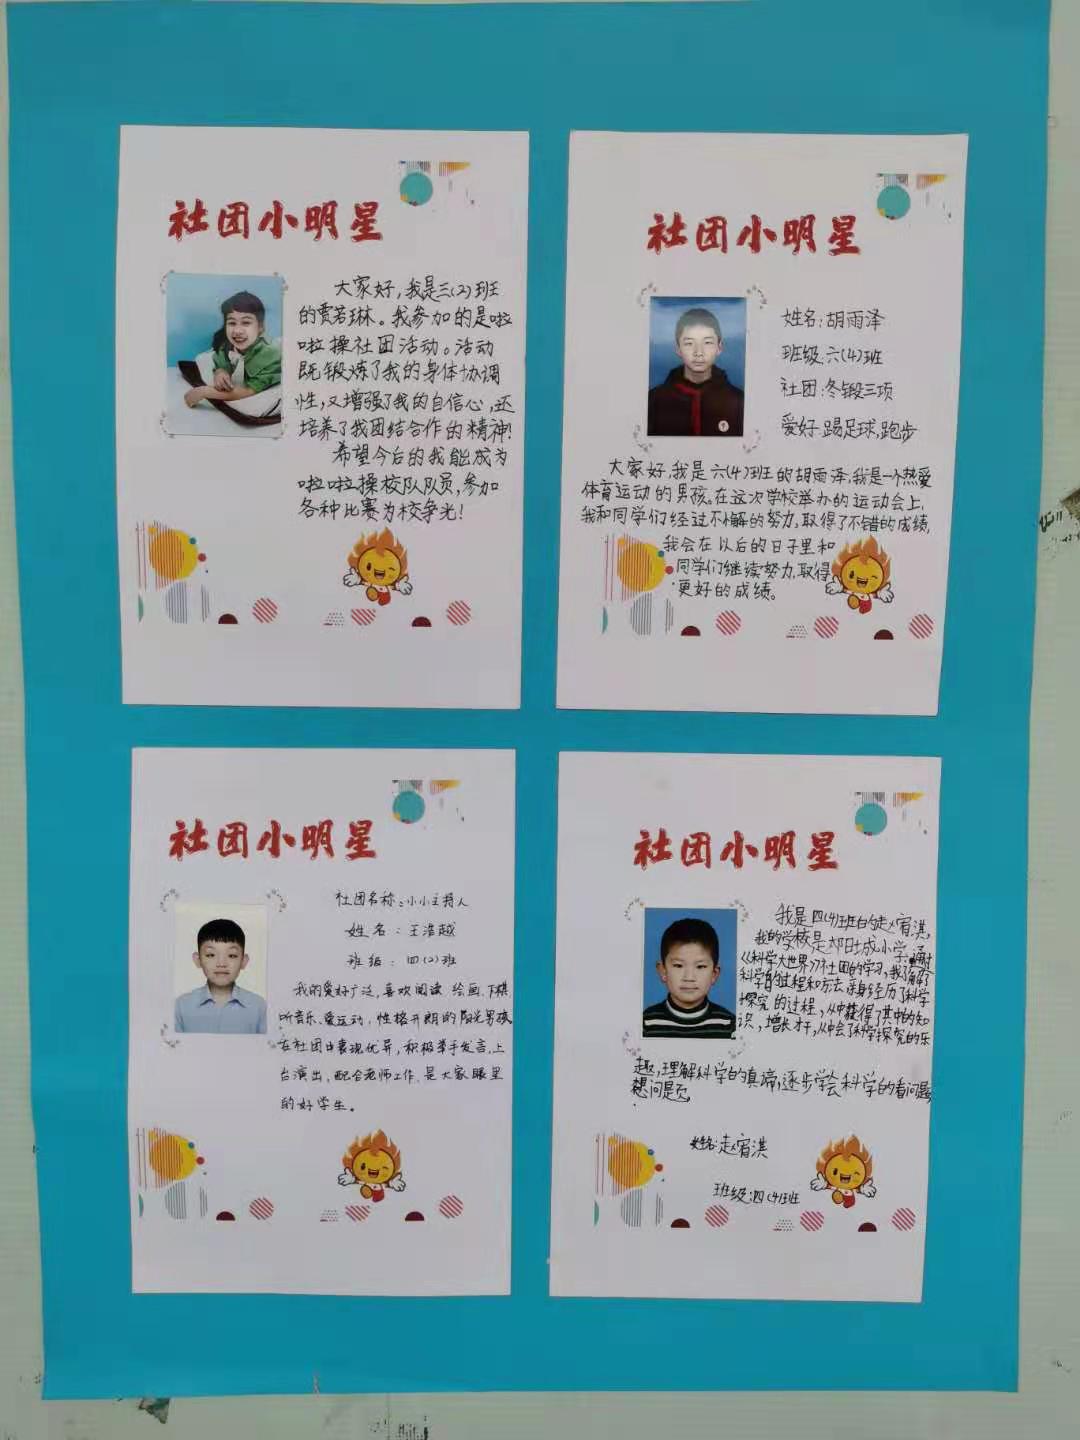 社团小明星
大家好，我是三(2)班
的贾若琳。我参加的是啦
啦操社团活动。活动
既锻炼了我的身体协调
性，又增强了我的自信心，还
培养了我团结合作的精神！
希望今后的我能成为
啦啦操校队队员，参加
各种比赛为校争光！
社团小明星
姓名：胡雨泽
班级：六(4)班
社团：冬锻三项
爱好：踢足球，跑步
大家好，我是六(4)班的胡雨泽，我是一个热爱
体育运动的男孩。在这次学校举办的运动会上，
我和同学们经过不懈的努力，取得了不错的成绩，
我会在以后的日子里和
同学们继续努力，取得
更好的成绩。
社团小明星
社团名称：小小主持人
姓名：王浩越
班级：四(2)班
我的爱好广泛，喜欢阅读、绘画、下棋、
听音乐、爱运动，性格开朗的阳光男孩，
在社团中表现优异，积极举手发言，上
台演出，配合老师工作，是大家眼里
的好学生。
社团小明星
我是四(4)班的赵宥淇，
我的学校是 小学，通过
《科学大世界》社团的学习，我了解了
科学的过程和方法，亲身经历了科学
探究的过程，从中获得了其中的知
识，增长才干，从中会了科学探究的乐
趣，理解科学的真谛，逐步学会科学的看问题，
想问题
姓名：赵宥淇
班级：四(4)班